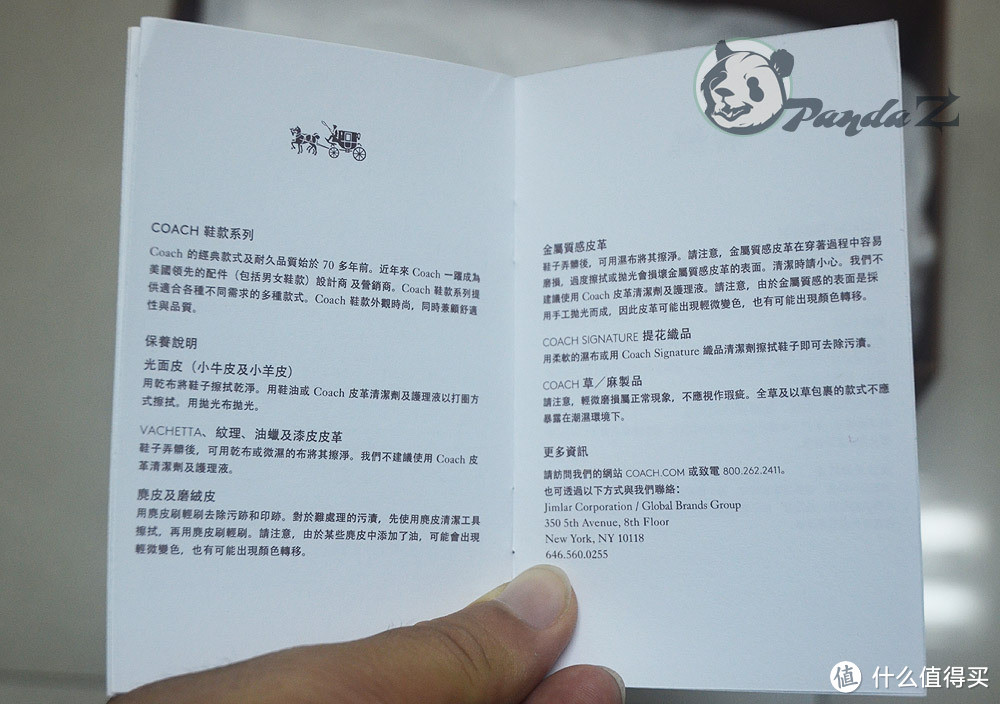 COACH 鞋款系列
Coach 的經典款式及耐久品質始於 70 多年前。近年來 Coach 一躍成為
美國領先的配件（包括男女鞋款）設計商 及營銷商。Coach 鞋款系列提
供適合各種不同需求的多種款式。Coach 鞋款外觀時尚，同時兼顧舒適
性與品質。
保養說明
光面皮（小牛皮及小羊皮）
用乾布將鞋子擦拭乾淨。用鞋油或 Coach 皮革清潔劑及護理液以打圈方
式擦拭。用拋光布拋光。
VACHETTA、紋理、油蠟及漆皮皮革
鞋子弄髒後，可用乾布或微濕的布將其擦淨。我們不建議使用 Coach 皮
革清潔劑及護理液。
麂皮及磨絨皮
用麂皮刷輕刷去除污跡和印跡。對於難處理的污漬，先使用麂皮清潔工具
擦拭，再用麂皮刷輕刷。請注意，由於某些麂皮中添加了油，可能會出現
輕微變色，也有可能出現顏色轉移。
金屬質感皮革
鞋子弄髒後，可用濕布將其擦淨。請注意，金屬質感皮革在穿著過程中容易
磨損，過度擦拭或拋光會損壞金屬質感皮革的表面。清潔時請小心。我們不
建議使用 Coach 皮革清潔劑及護理液。請注意，由於金屬質感的表面是採
用手工拋光而成，因此皮革可能出現輕微變色，也有可能出現顏色轉移。
COACH SIGNATURE 提花織品
用柔軟的濕布或用 Coach Signature 織品清潔劑擦拭鞋子即可去除污漬。
COACH 草／麻製品
請注意，輕微磨損屬正常現象，不應視作瑕疵。全草及以草包裹的款式不應
暴露在潮濕環境下。
更多資訊
請訪問我們的網站 COACH.COM 或致電 800.262.2411。
也可透過以下方式與我們聯絡：
Jimlar Corporation / Global Brands Group
350 5th Avenue, 8th Floor
New York, NY 10118
646.560.0255
PandaZ
值 什么值得买